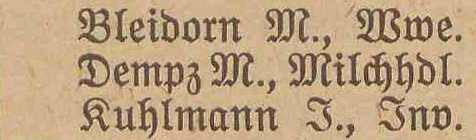 Bleidorn M., Wwe.
Dempz M., Milchhdl.
Kuhlmann J., Inv.